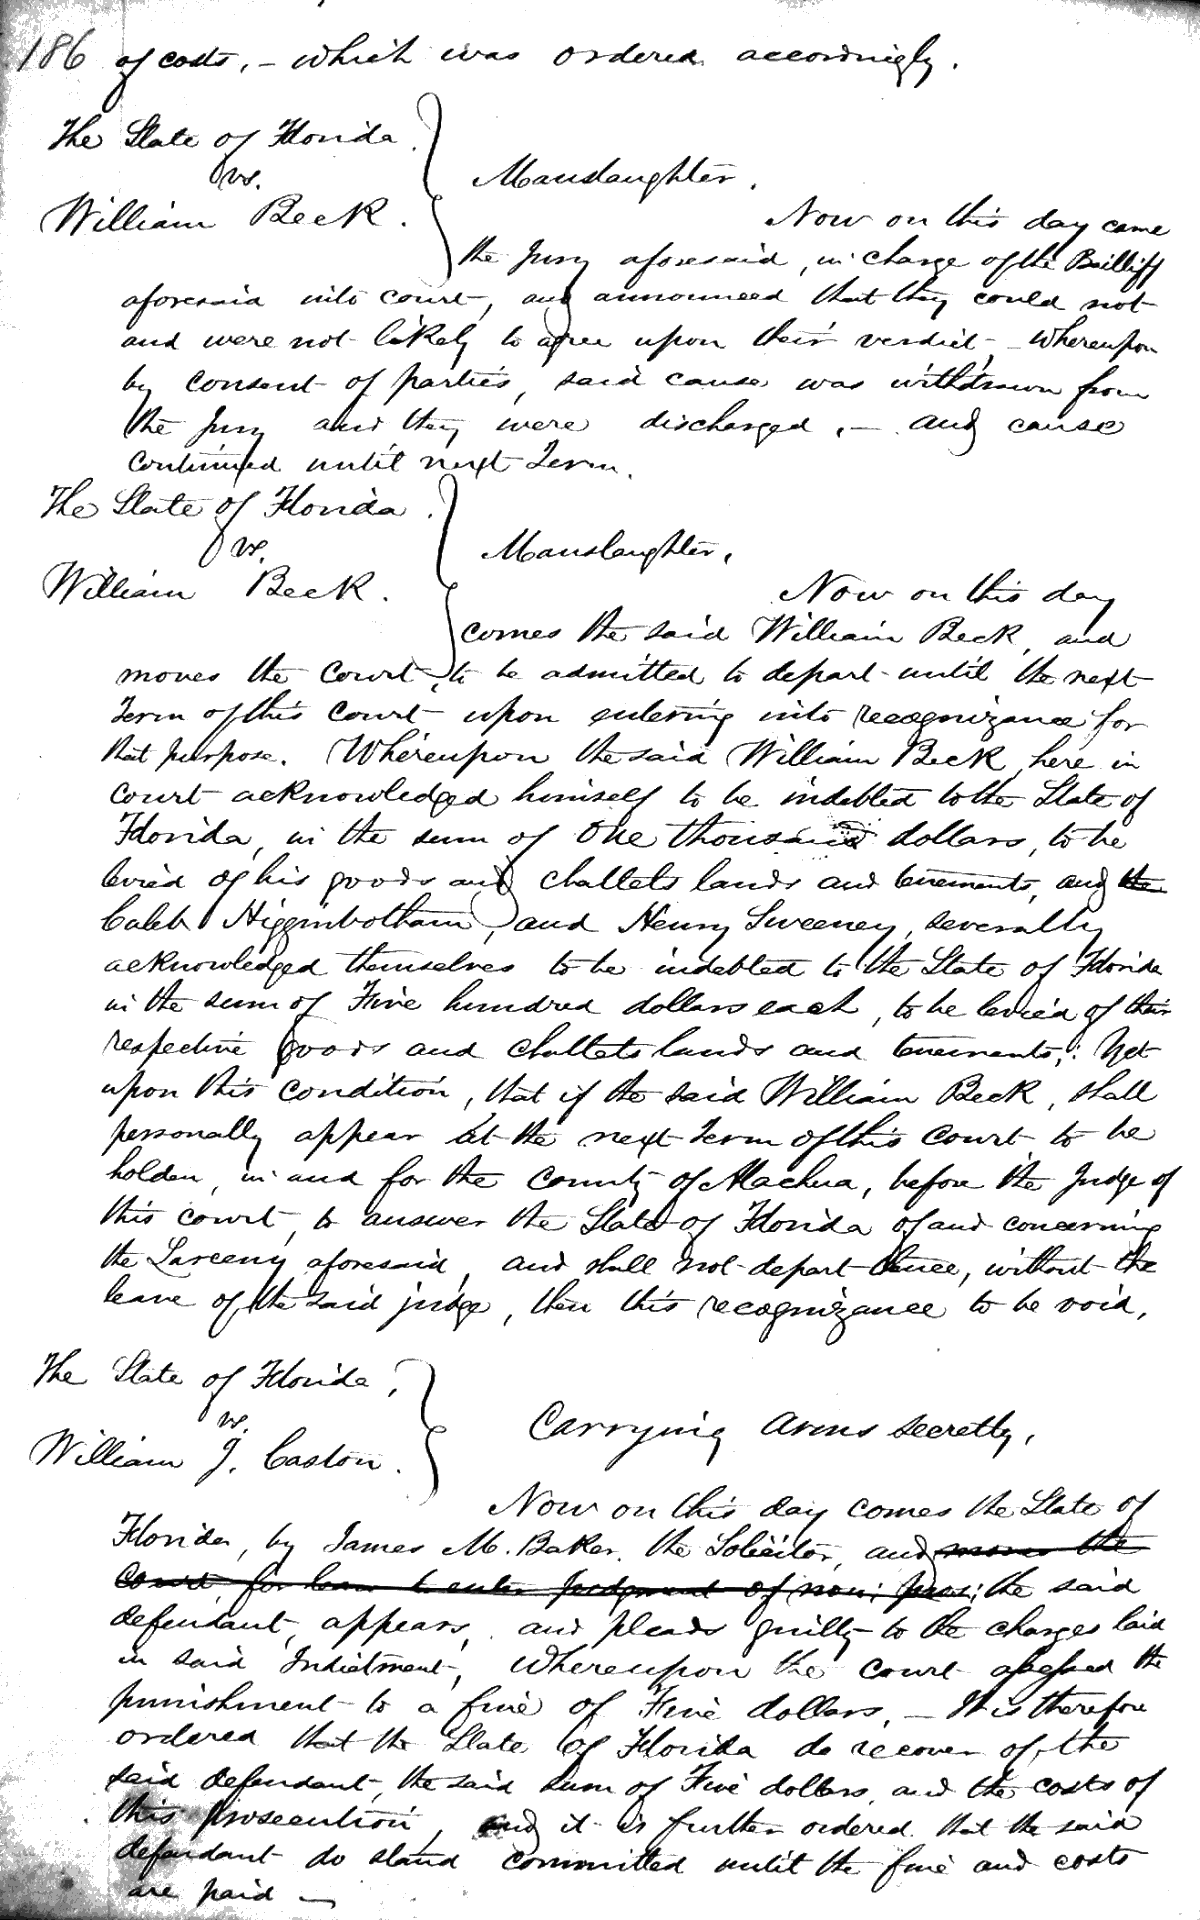 186 of costs, – which was ordered accordingly.
The State of Florida.
vs.
Manslaughter.
William Beck.
Now on this day came
the Jury aforesaid, in charge of the Bailiff
aforesaid into court, and announced that they could not
and were not likely to agree upon their verdict, – Whereupon
by consent of parties, said cause was withdrawn from
the Jury and they were discharged, – and cause
continued until next Term.
The State of Florida.
vs.
Manslaughter,
William Beck.
Now on this day
comes the said William Beck, and
moves the Court, to be admitted to depart until the next
Term of this Court upon entering into recognizance for
that purpose. Whereupon the said William Beck, here in
Court acknowledged himself to be indebted to the State of
Florida, in the sum of One thousand dollars, to be
levied of his goods and chattels lands and tenements, and the
Caleb Higginbotham, and Henry Sweeney, severally
acknowledged themselves to be indebted to the State of Florida
in the sum of Five hundred dollars each, to be levied of their
respective goods and chattels lands and tenements; Yet
upon this condition, that if the said William Beck, shall
personally appear at the next Term of this Court to be
holden, in and for the County of Alachua, before the Judge of
this court, to answer the State of Florida of and concerning
the Larceny aforesaid, and shall not depart thence, without the
leave of the said judge, then this recognizance to be void,
The State of Florida,
vs.
Carrying Arms secretly,
William J. Caston.
Now on this day comes the State of
Florida, by James M. Baker, the Solicitor, and moves the
Court for leave to enter judgment of non: pros: the said
defendant, appears, and pleads guilty to the charges laid
in said Indictment, Whereupon the Court assessed the
punishment to a fine of Five dollars. – It is therefore
ordered that the State of Florida do recover of, the
said defendant, the said sum of Five dollars, and the costs of
this prosecution, and it is further ordered that the said
defendant do stand committed until the fine and costs
are paid –